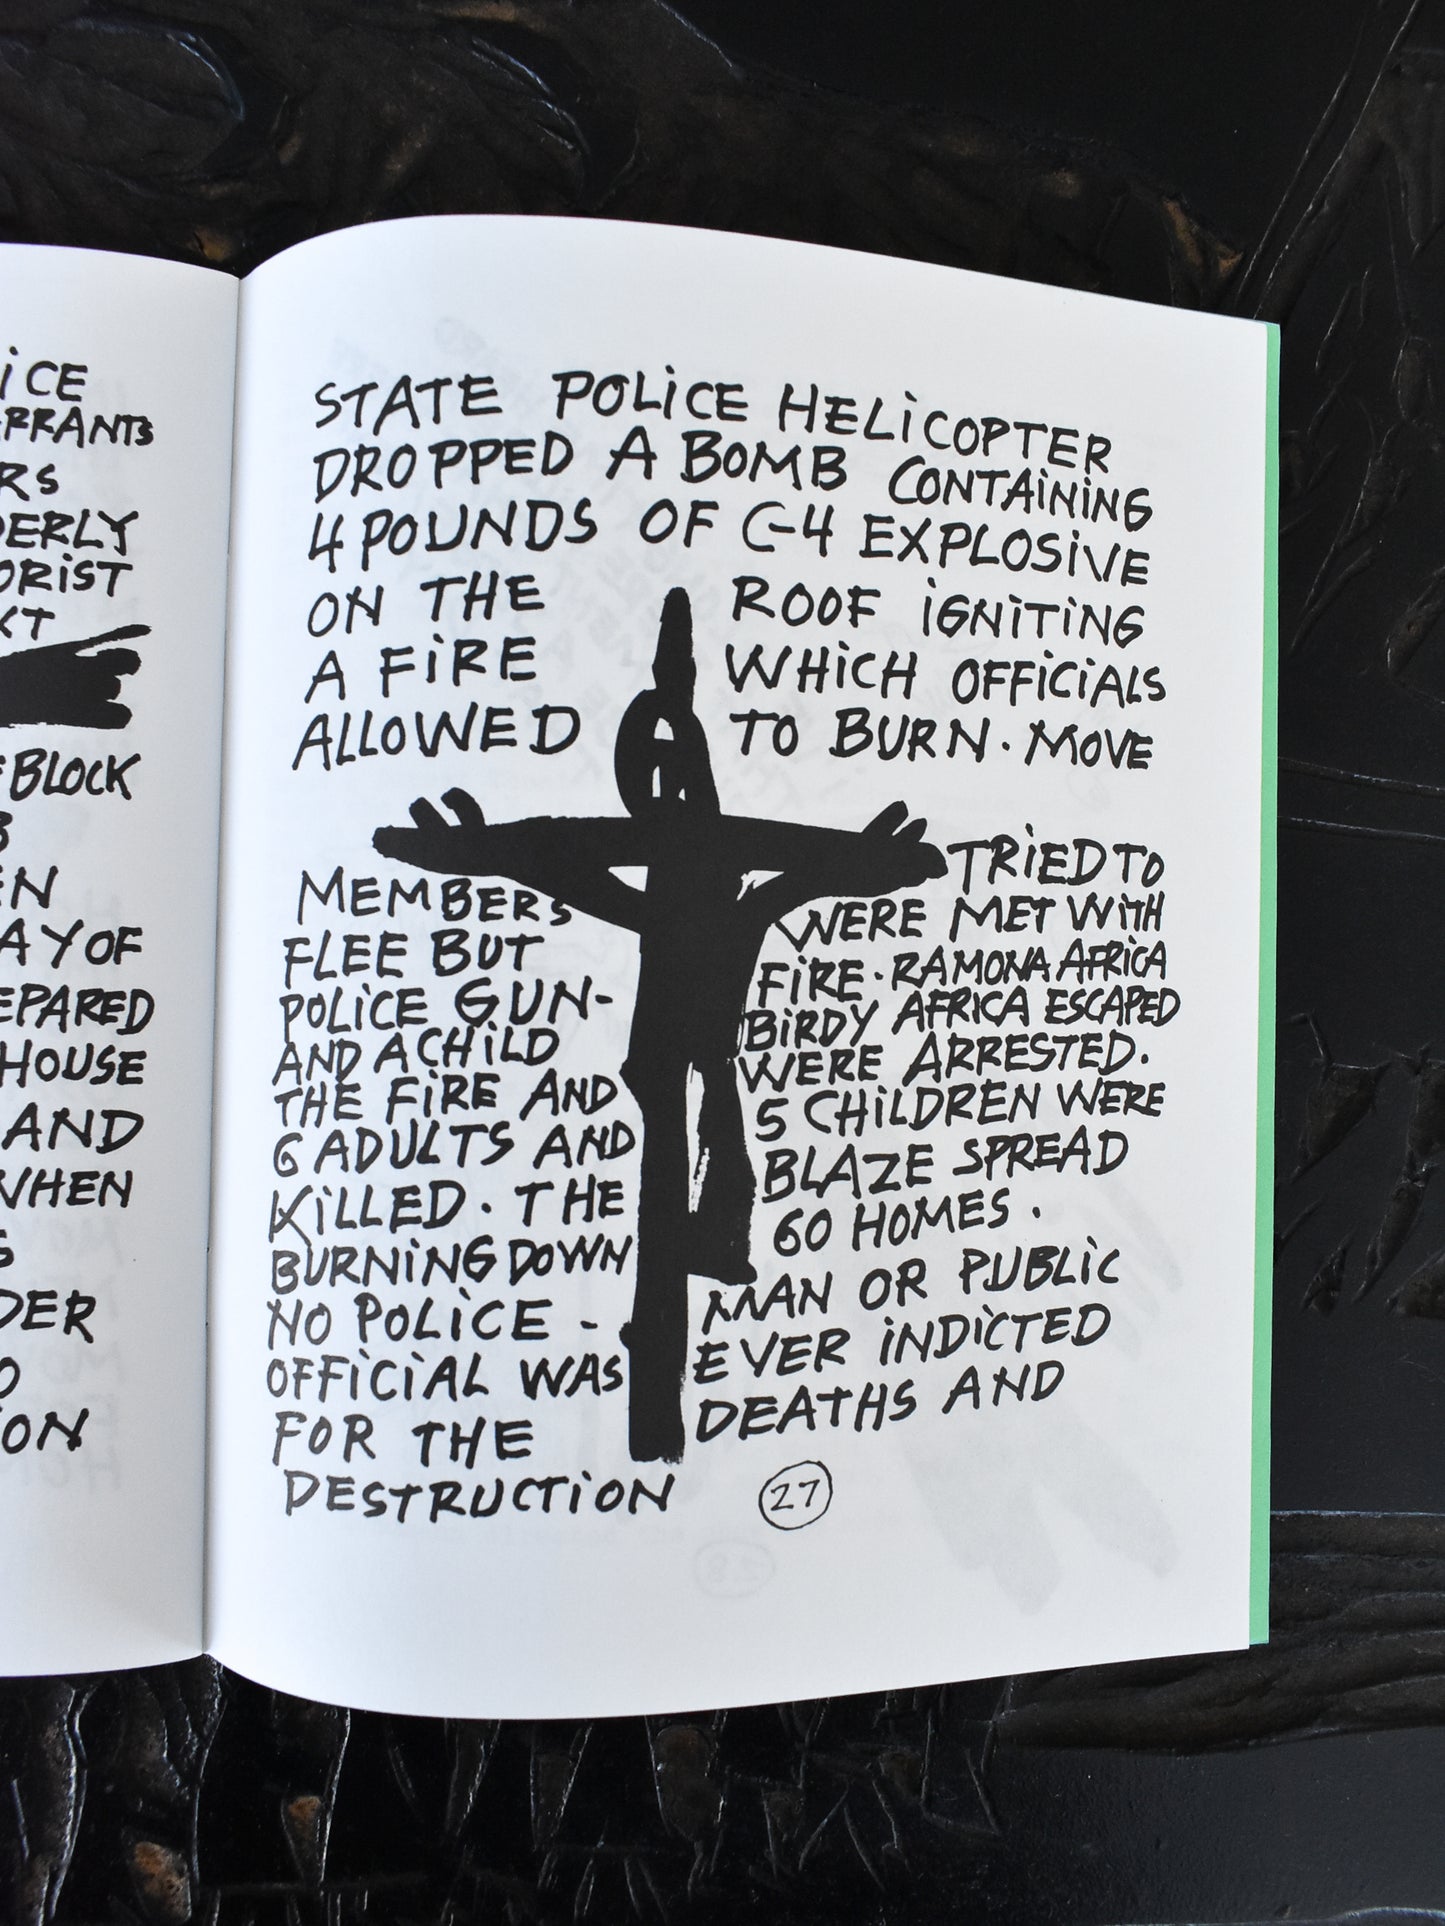 ICE
RRANTS
RS
DERLY
ORIST
XT
BLOCK
EN
AY OF
EPARED
HOUSE
AND
WHEN
S
DER
O
ON
STATE POLICE HELICOPTER
DROPPED A BOMB CONTAINING
4 POUNDS OF C-4 EXPLOSIVE
ON THE ROOF IGNITING
A FIRE WHICH OFFICIALS
ALLOWED TO BURN. MOVE
MEMBERS TRIED TO
FLEE BUT WERE MET WITH
POLICE GUN- FIRE. RAMONA AFRICA
AND A CHILD BIRDY AFRICA ESCAPED
THE FIRE AND WERE ARRESTED.
6 ADULTS AND 5 CHILDREN WERE
KILLED. THE BLAZE SPREAD
BURNING DOWN 60 HOMES.
NO POLICE - MAN OR PUBLIC
OFFICIAL WAS EVER INDICTED
FOR THE DEATHS AND
DESTRUCTION
27
28